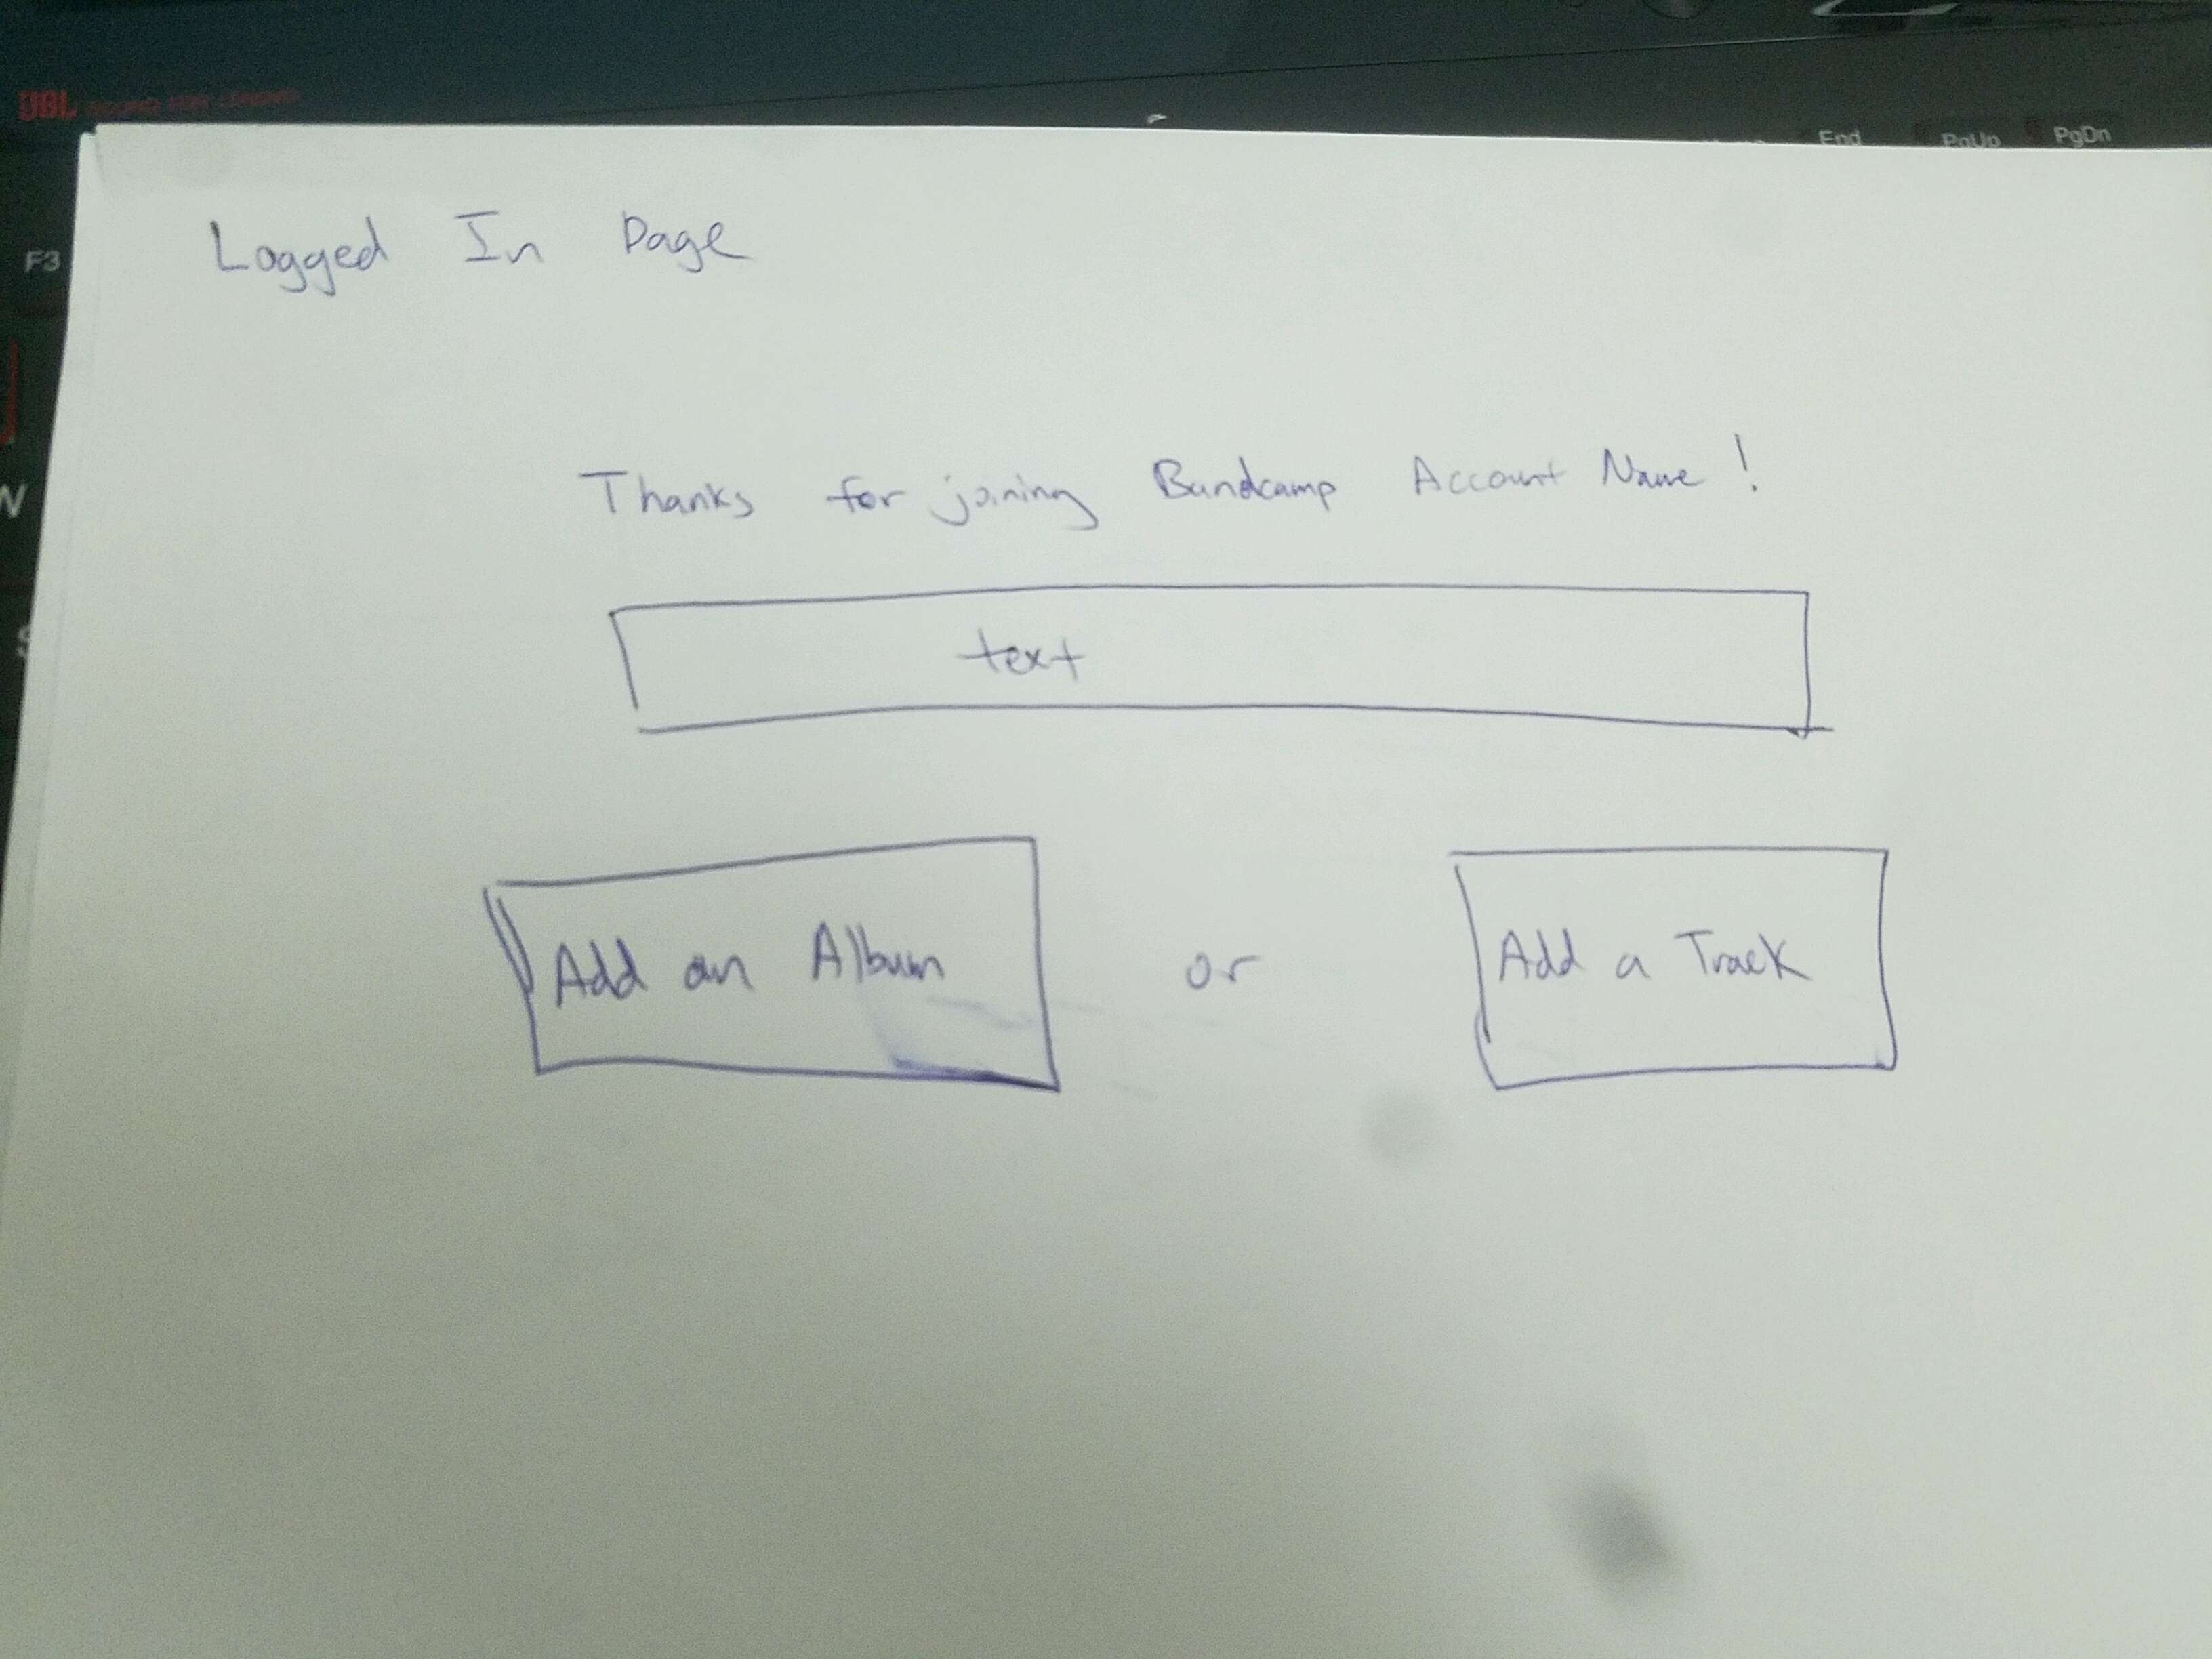 JBL SOUND FOR LENOVO
End PgUp PgDn
F3
Logged In Page
W
Thanks for joining Bandcamp Account Name !
S
text
Add an Album or Add a Track